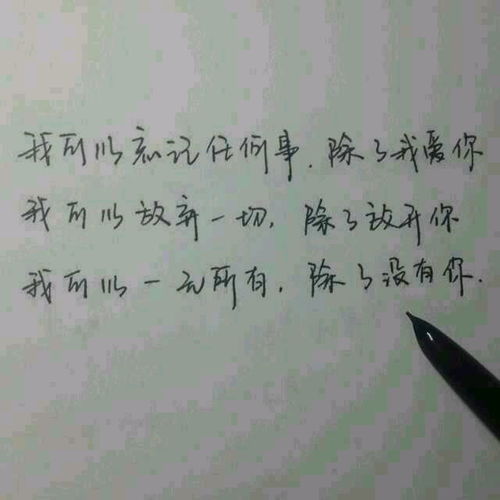 我可以忘记任何事.除了我爱你
我可以放弃一切,除了放开你
我可以一无所有,除了没有你.